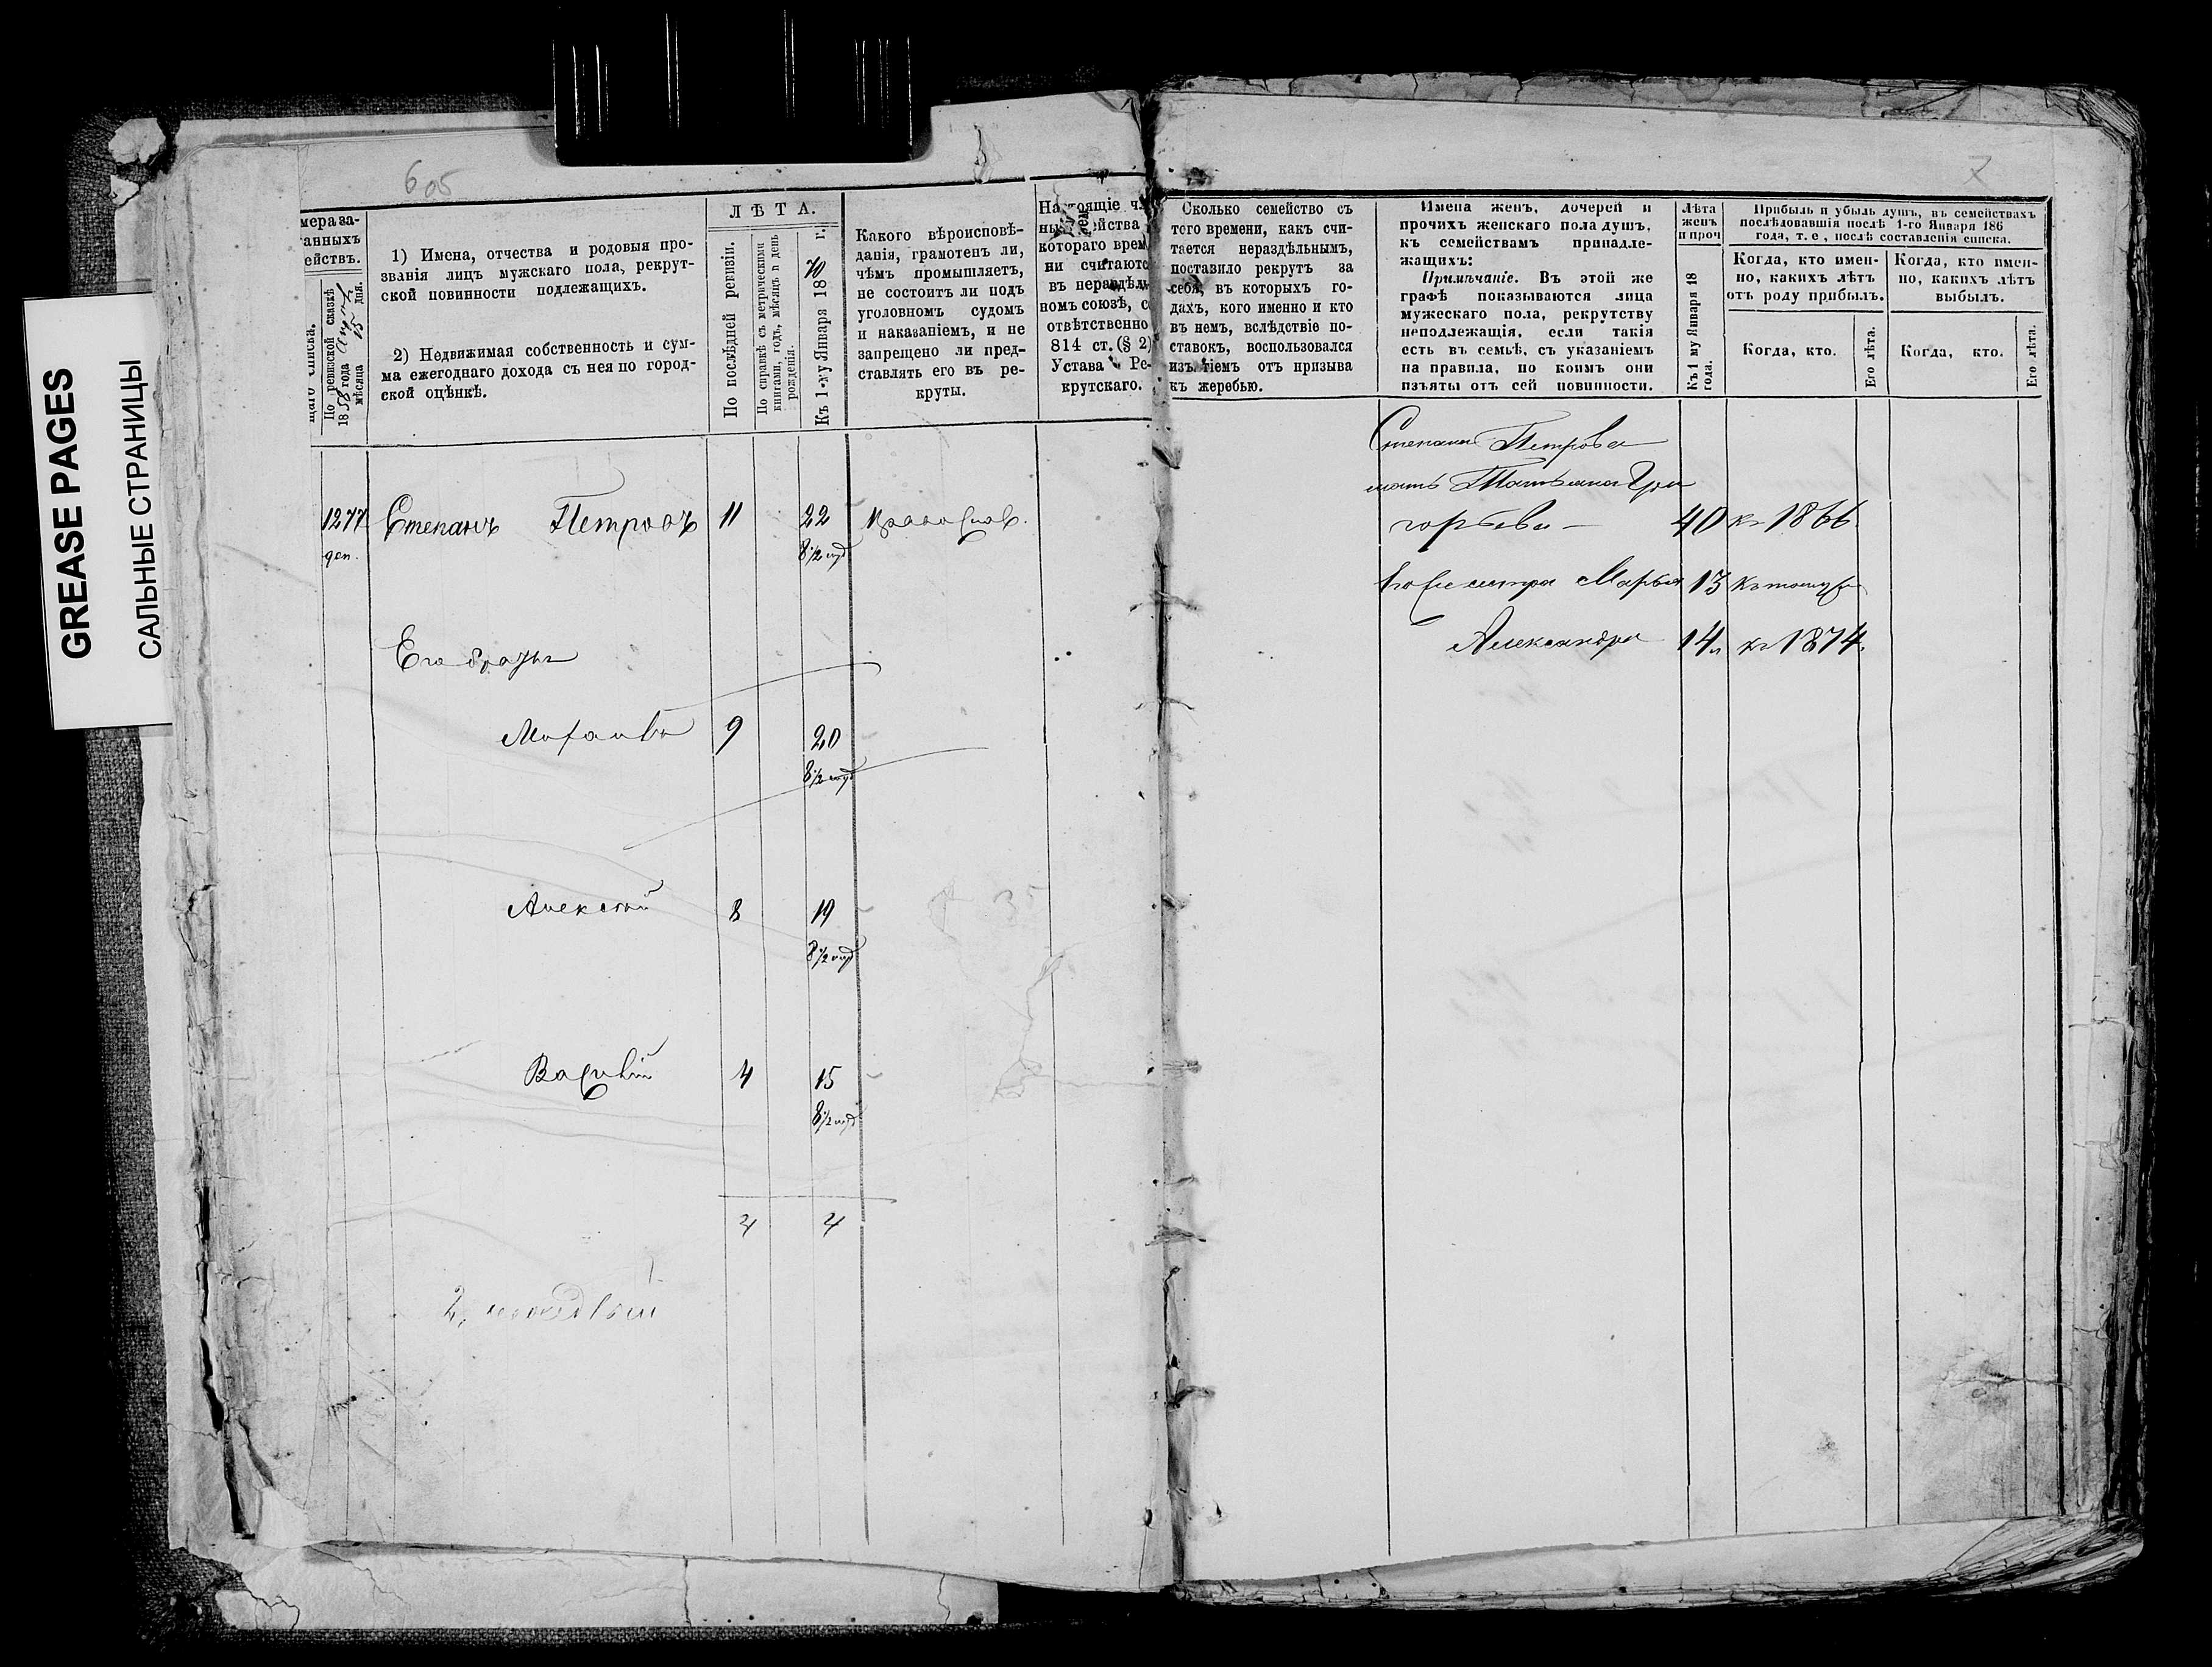 GREASE PAGES
САЛЬНЫЕ СТРАНИЦЫ
605
мера за-
анныхъ
ействъ.
По ревизской сказкѣ
1858 года
мѣсяца 15 дня.
1) Имена, отчества и родовыя про-
званія лицъ мужскаго пола, рекрут-
ской повинности подлежащихъ.
2) Недвижимая собственность и сум-
ма ежегоднаго дохода съ нея по город-
ской оцѣнкѣ.
ЛѢТА.
По послѣдней ревизіи.
По справкѣ съ метрическими
книгами, годъ, мѣсяцъ и день
рожденія.
Къ 1-му Января 1870 г.
Какого вѣроисповѣ-
данія, грамотенъ ли,
чѣмъ промышляетъ,
не состоитъ ли подъ
уголовномъ судомъ
и наказаніемъ, и не
запрещено ли пред-
ставлять его въ ре-
круты.
котораго врем
ни считаютс
въ нераздѣль
номъ союзѣ, с
отвѣтственно
814 ст. (§ 2)
Устава Ре-
крутскаго.
1277 Степанъ Петровъ 11 22
8 1/2
Его братья
9 20
8 1/2
Алексѣй 8 19
8 1/2
Василій 4 15
8 1/2
4 4
7
Сколько семейство съ
того времени, какъ счи-
тается нераздѣльнымъ,
поставило рекрутъ за
себя, въ которыхъ го-
дахъ, кого именно и кто
въ немъ, вслѣдствіе по-
ставокъ, воспользовался
изъятіемъ отъ призыва
къ жеребью.
Имена женъ, дочерей и
прочихъ женскаго пола душъ,
къ семействамъ принадле-
жащихъ:
Примѣчаніе. Въ этой же
графѣ показываются лица
мужескаго пола, рекрутству
неподлежащія, если такія
есть въ семьѣ, съ указаніемъ
на правила, по коимъ они
изъяты отъ сей повинности.
Лѣта
женъ
и проч
Къ 1 му Января 18
года.
Прибыль и убыль душъ, въ семействахъ
послѣдовавшія послѣ 1-го Января 186
года, т. е., послѣ составленія списка.
Когда, кто имен-
но, какихъ лѣтъ
отъ роду прибылъ.
Когда, кто имен-
но, какихъ лѣтъ
выбылъ.
Когда, кто.
Его лѣта.
Когда, кто.
Его лѣта.
Степана Петрова
мать Татьяна Гри
горьева — 40 къ 1866
Его сестра Марья 13
Александра 14 къ 1874